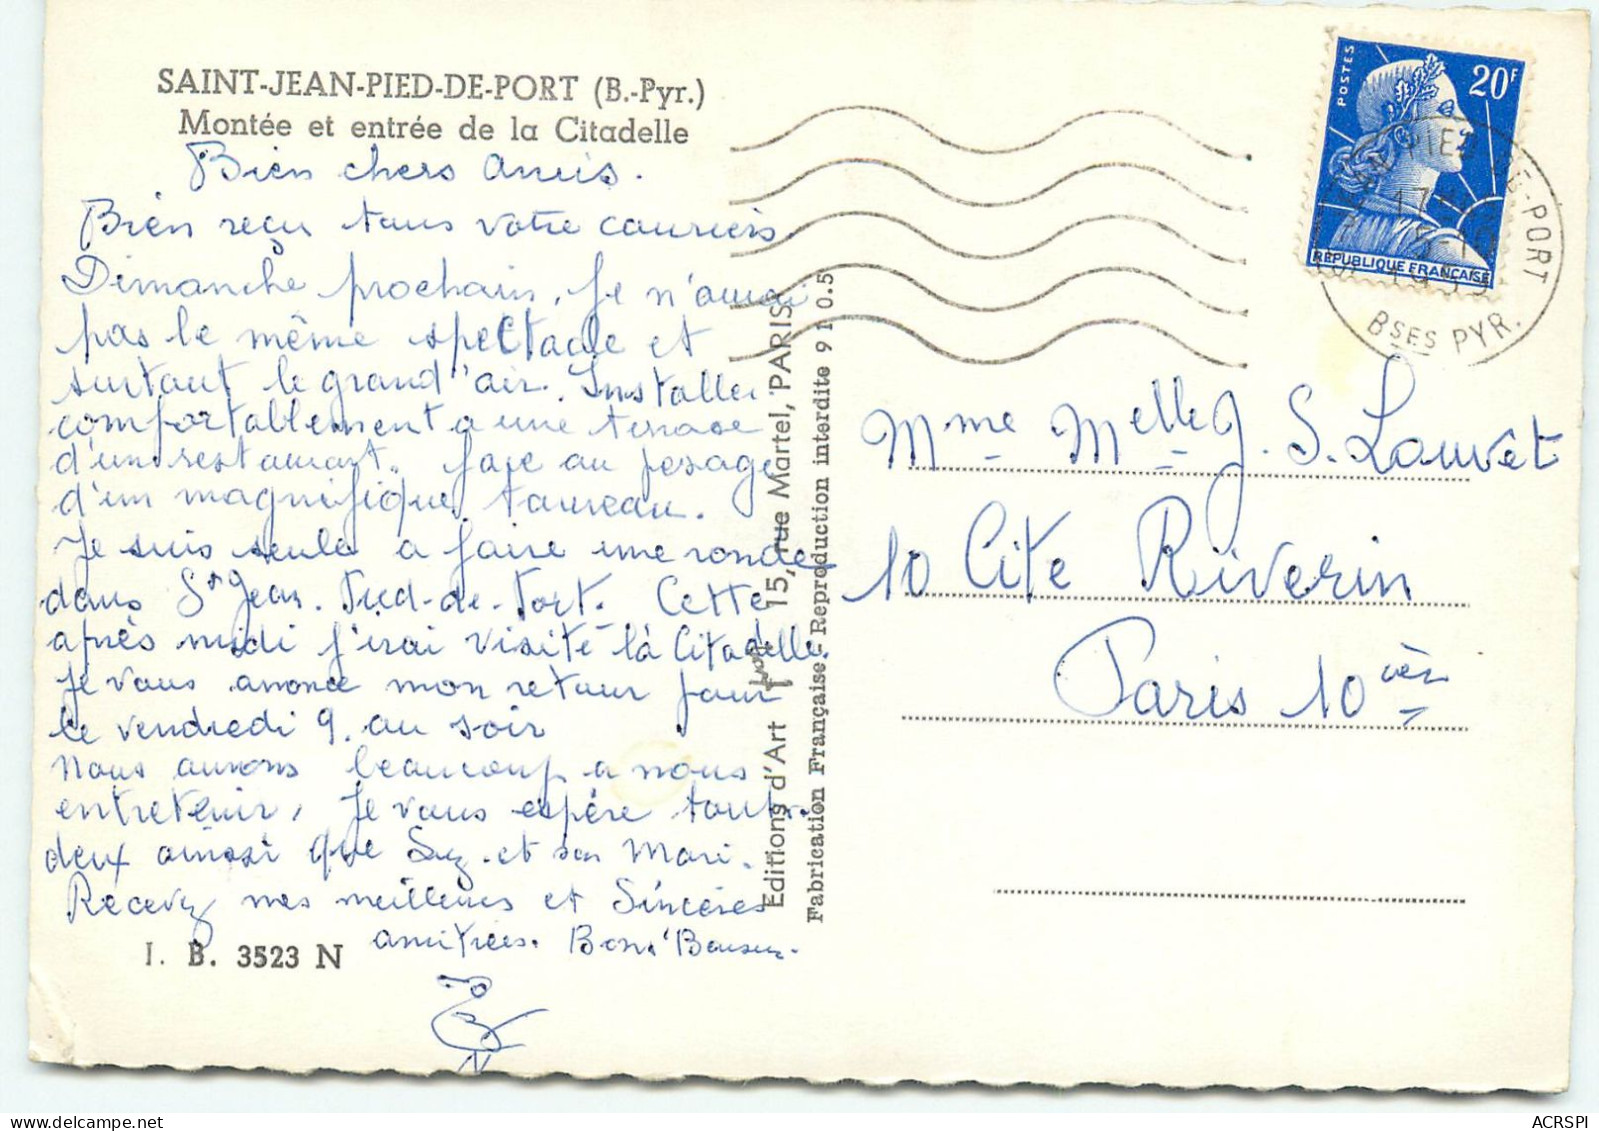 SAINT-JEAN-PIED-DE-PORT (B.-Pyr.)
Montée et entrée de la Citadelle
Bien chers Amis.
Bien reçu tous votre courriers.
Dimanche prochain, je n'aurai
pas le même spectacle et
surtout le grand'air. Installer
comfortablement a une terrase
d'un restaurant. face au pesage
d'un magnifique taureau.
Je suis seule a faire une ronde
dans St Jean. Pied-de-Port. Cette
après midi j'irai visité la Citadelle.
Je vous anonce mon retour pour
le vendredi 9. au soir
Nous aurons beaucoup a nous
entretenir, Je vous espère tout
deux ainssi que Suz. et son Mari.
Recevez mes meilleures et Sincères
amitiées. Bons Baisers.
I. B. 3523 N
Editions d'Art Yvon 15, rue Martel, PARIS
Fabrication Française - Reproduction interdite 9 10.5
POSTES
20F
REPUBLIQUE FRANÇAISE
PIED-DE-PORT
17
BSES PYR.
Mme Melle J. S. Lauvet
10 Cite Riverin
Paris 10 ièr
ACRSPI